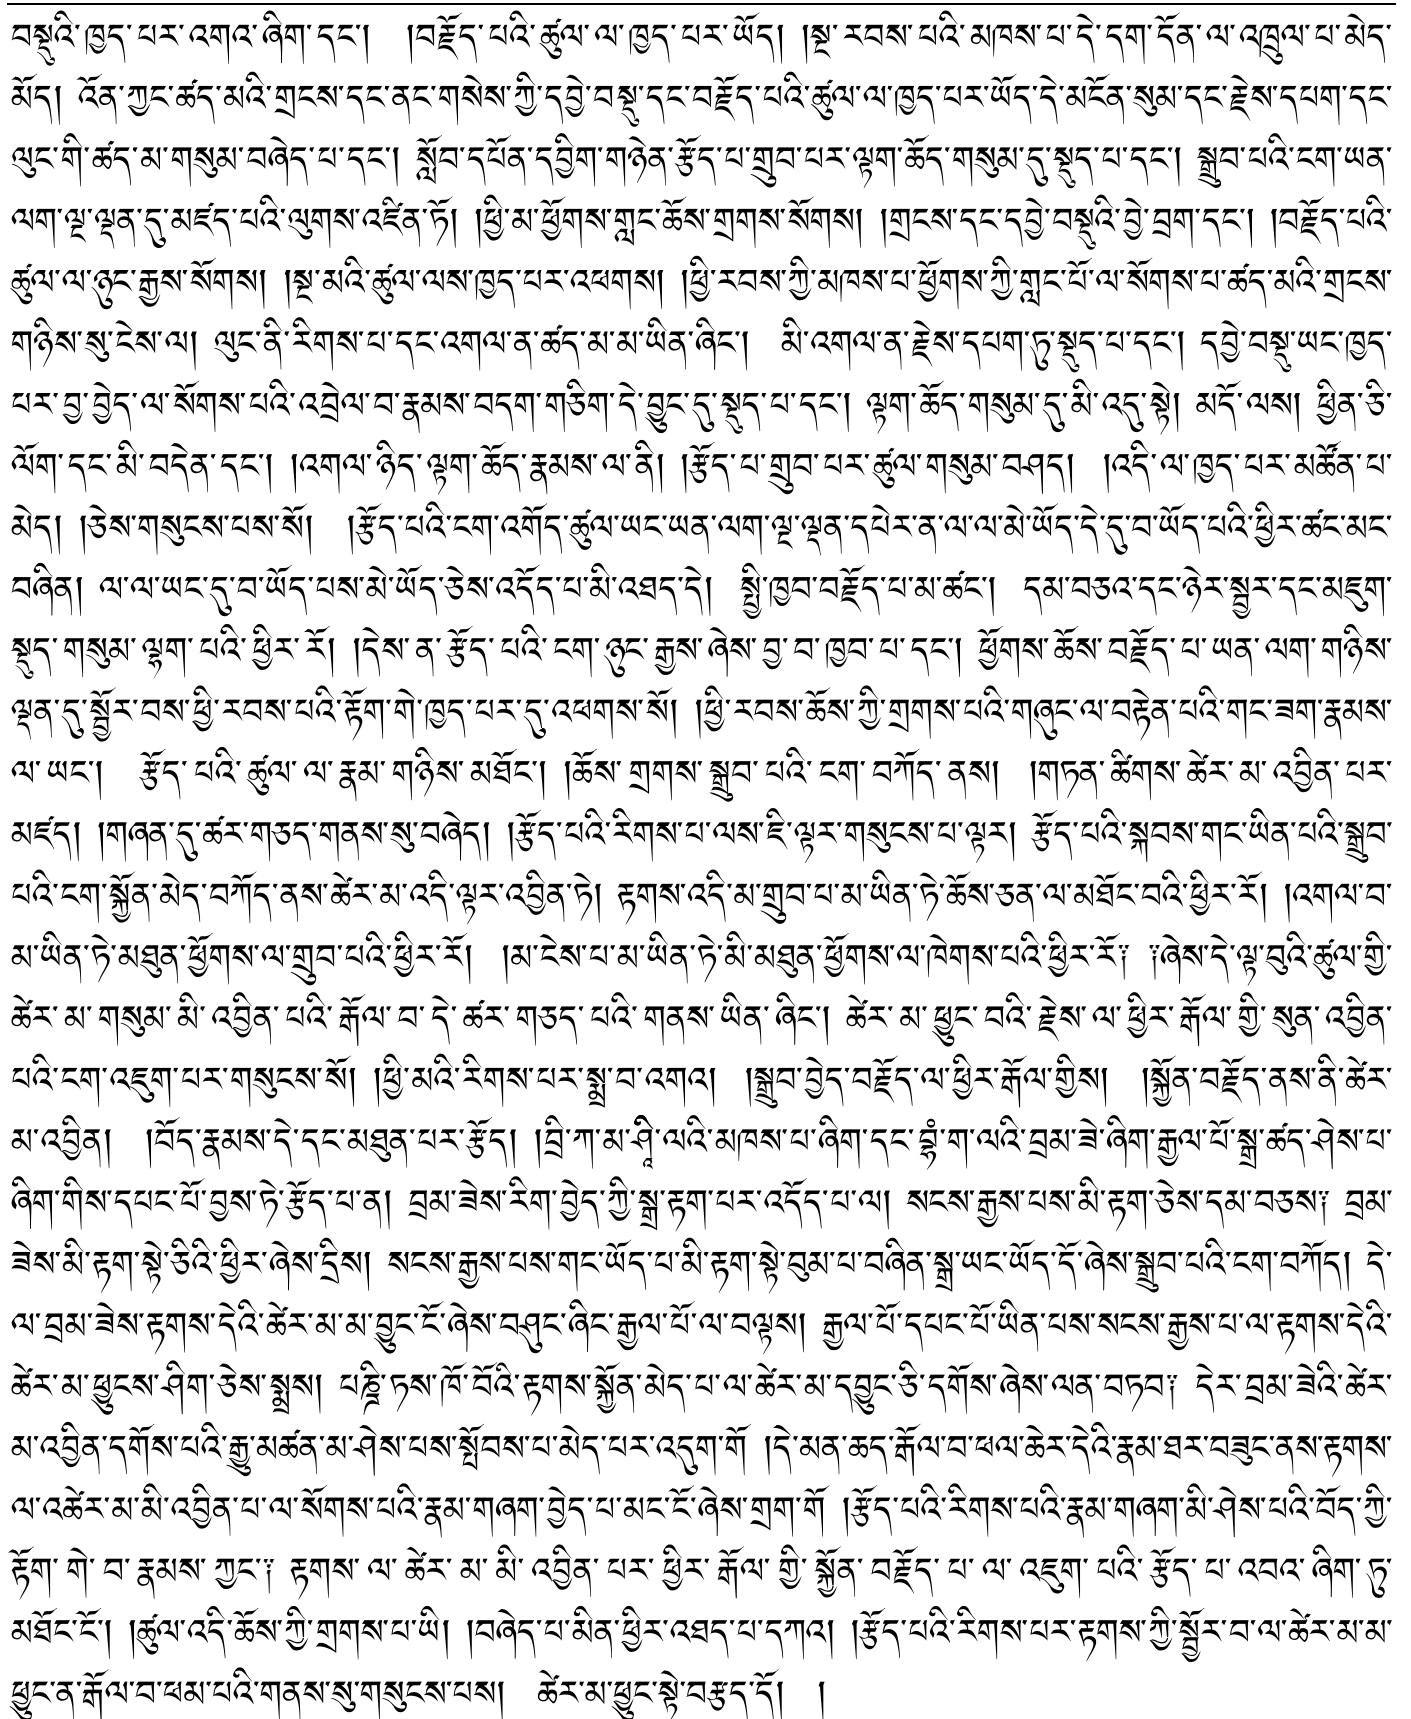 བསྡུའི་ཁྱད་པར་འགའ་ཞིག་དང་། །བརྗོད་པའི་ཚུལ་ལ་ཁྱད་པར་ཡོད། །སྔ་རབས་པའི་མཁས་པ་དེ་དག་དོན་ལ་འཁྲུལ་པ་མེད་
མོད། འོན་ཀྱང་ཚད་མའི་གྲངས་དང་ནང་གསེས་ཀྱི་དབྱེ་བསྡུ་དང་བརྗོད་པའི་ཚུལ་ལ་ཁྱད་པར་ཡོད་དེ་མངོན་སུམ་དང་རྗེས་དཔག་དང་
ལུང་གི་ཚད་མ་གསུམ་བཞེད་པ་དང་། སློབ་དཔོན་དབྱིག་གཉེན་རྩོད་པ་གྲུབ་པར་ལྟག་ཆོད་གསུམ་དུ་སྡུད་པ་དང་། སྒྲུབ་པའི་ངག་ཡན་
ལག་ལྔ་ལྡན་དུ་མཛད་པའི་ལུགས་འཛིན་ཏོ། །ཕྱི་མ་ཕྱོགས་གླང་ཆོས་གྲགས་སོགས། །གྲངས་དང་དབྱེ་བསྡུའི་བྱེ་བྲག་དང་། །བརྗོད་པའི་
ཚུལ་ལ་ཉུང་རྒྱས་སོགས། །སྔ་མའི་ཚུལ་ལས་ཁྱད་པར་འཕགས། །ཕྱི་རབས་ཀྱི་མཁས་པ་ཕྱོགས་ཀྱི་གླང་པོ་ལ་སོགས་པ་ཚད་མའི་གྲངས་
གཉིས་སུ་ངེས་ལ། ལུང་ནི་རིགས་པ་དང་འགལ་ན་ཚད་མ་མ་ཡིན་ཞིང་། མི་འགལ་ན་རྗེས་དཔག་ཏུ་སྡུད་པ་དང་། དབྱེ་བསྡུ་ཡང་ཁྱད་
པར་བྱ་བྱེད་ལ་སོགས་པའི་འབྲེལ་བ་རྣམས་བདག་གཅིག་དེ་བྱུང་དུ་སྡུད་པ་དང་། ལྟག་ཆོད་གསུམ་དུ་མི་འདུ་སྟེ། མདོ་ལས། ཕྱིན་ཅི་
ལོག་དང་མི་བདེན་དང་། །འགལ་ཉིད་ལྟག་ཆོད་རྣམས་ལ་ནི། །རྩོད་པ་གྲུབ་པར་ཚུལ་གསུམ་བཤད། །འདི་ལ་ཁྱད་པར་མཚོན་པ་
མེད། །ཅེས་གསུངས་པས་སོ། །རྩོད་པའི་ངག་འགོད་ཚུལ་ཡང་ཡན་ལག་ལྔ་ལྡན་དཔེར་ན་ལ་ལ་མེ་ཡོད་དེ་དུ་བ་ཡོད་པའི་ཕྱིར་ཚང་མང་
བཞིན། ལ་ལ་ཡང་དུ་བ་ཡོད་པས་མེ་ཡོད་ཅེས་འདོད་པ་མི་འཐད་དེ། སྤྱི་ཁྱབ་བརྗོད་པ་མ་ཚང་། དམ་བཅའ་དང་ཉེར་སྦྱར་དང་མཇུག་
སྡུད་གསུམ་ལྷག་པའི་ཕྱིར་རོ། །དེས་ན་རྩོད་པའི་ངག་ཉུང་རྒྱས་ཞེས་བྱ་བ་ཁྱབ་པ་དང་། ཕྱོགས་ཆོས་བརྗོད་པ་ཡན་ལག་གཉིས་
ལྡན་དུ་སྦྱོར་བས་ཕྱི་རབས་པའི་རྟོག་གེ་ཁྱད་པར་དུ་འཕགས་སོ། །ཕྱི་རབས་ཆོས་ཀྱི་གྲགས་པའི་གཞུང་ལ་བརྟེན་པའི་གང་ཟག་རྣམས་
ལ་ཡང་། རྩོད་པའི་ཚུལ་ལ་རྣམ་གཉིས་མཐོང་། །ཆོས་གྲགས་སྒྲུབ་པའི་ངག་བཀོད་ནས། །གཏན་ཚིགས་ཚེར་མ་འབྱིན་པར་
མཛད། །གཞན་དུ་ཚར་གཅད་གནས་སུ་བཞེད། །རྩོད་པའི་རིགས་པ་ལས་ཇི་ལྟར་གསུངས་པ་ལྟར། རྩོད་པའི་སྐབས་གང་ཡིན་པའི་སྒྲུབ་
པའི་ངག་སྐྱོན་མེད་བཀོད་ནས་ཚེར་མ་འདི་ལྟར་འབྱིན་ཏེ། རྟགས་འདི་མ་གྲུབ་པ་མ་ཡིན་ཏེ་ཆོས་ཅན་ལ་མཐོང་བའི་ཕྱིར་རོ། །འགལ་བ་
མ་ཡིན་ཏེ་མཐུན་ཕྱོགས་ལ་གྲུབ་པའི་ཕྱིར་རོ། །མ་ངེས་པ་མ་ཡིན་ཏེ་མི་མཐུན་ཕྱོགས་ལ་ཁེགས་པའི་ཕྱིར་རོ༑ ༑ཞེས་དེ་ལྟ་བུའི་ཚུལ་གྱི་
ཚེར་མ་གསུམ་མི་འབྱིན་པའི་རྒོལ་བ་དེ་ཚར་གཅད་པའི་གནས་ཡིན་ཞིང་། ཚེར་མ་ཕྱུང་བའི་རྗེས་ལ་ཕྱིར་རྒོལ་གྱི་སུན་འབྱིན་
པའི་ངག་འཇུག་པར་གསུངས་སོ། །ཕྱི་མའི་རིགས་པར་སྨྲ་བ་འགའ། །སྒྲུབ་བྱེད་བརྗོད་ལ་ཕྱིར་རྒོལ་གྱིས། །སྐྱོན་བརྗོད་ནས་ནི་ཚེར་
མ་འབྱིན། །བོད་རྣམས་དེ་དང་མཐུན་པར་རྩོད། །བྲི་ཀ་མ་ཤཱི་ལའི་མཁས་པ་ཞིག་དང་བྷཾ་ག་ལའི་བྲམ་ཟེ་ཞིག་རྒྱལ་པོ་སྒྲ་ཚད་ཤེས་པ་
ཞིག་གིས་དཔང་པོ་བྱས་ཏེ་རྩོད་པ་ན། བྲམ་ཟེས་རིག་བྱེད་ཀྱི་སྒྲ་རྟག་པར་འདོད་པ་ལ། སངས་རྒྱས་པས་མི་རྟག་ཅེས་དམ་བཅས༑ བྲམ་
ཟེས་མི་རྟག་སྟེ་ཅིའི་ཕྱིར་ཞེས་དྲིས། སངས་རྒྱས་པས་གང་ཡོད་པ་མི་རྟག་སྟེ་བུམ་པ་བཞིན་སྒྲ་ཡང་ཡོད་དོ་ཞེས་སྒྲུབ་པའི་ངག་བཀོད། དེ་
ལ་བྲམ་ཟེས་རྟགས་དེའི་ཚེར་མ་མ་བྱུང་ངོ་ཞེས་བཤུང་ཞིང་རྒྱལ་པོ་ལ་བལྟས། རྒྱལ་པོ་དཔང་པོ་ཡིན་པས་སངས་རྒྱས་པ་ལ་རྟགས་དེའི་
ཚེར་མ་ཕྱུངས་ཤིག་ཅེས་སྨྲས། པཎྜི་ཏས་ཁོ་བོའི་རྟགས་སྐྱོན་མེད་པ་ལ་ཚེར་མ་དབྱུང་ཅི་དགོས་ཞེས་ལན་བཏབ༑ དེར་བྲམ་ཟེའི་ཚེར་
མ་འབྱིན་དགོས་པའི་རྒྱུ་མཚན་མ་ཤེས་པས་སྤོབས་པ་མེད་པར་འདུག་གོ །དེ་མན་ཆད་རྒོལ་བ་ཕལ་ཆེར་དེའི་རྣམ་ཐར་བཟུང་ནས་རྟགས་
ལ་འཚེར་མ་མི་འབྱིན་པ་ལ་སོགས་པའི་རྣམ་གཞག་བྱེད་པ་མང་ངོ་ཞེས་གྲག་གོ །རྩོད་པའི་རིགས་པའི་རྣམ་གཞག་མི་ཤེས་པའི་བོད་ཀྱི་
རྟོག་གེ་བ་རྣམས་ཀྱང་༑ རྟགས་ལ་ཚེར་མ་མི་འབྱིན་པར་ཕྱིར་རྒོལ་གྱི་སྐྱོན་བརྗོད་པ་ལ་འཇུག་པའི་རྩོད་པ་འབའ་ཞིག་ཏུ་
མཐོང་ངོ་། །ཚུལ་འདི་ཆོས་ཀྱི་གྲགས་པ་ཡི། །བཞེད་པ་མིན་ཕྱིར་འཐད་པ་དཀའ། །རྩོད་པའི་རིགས་པར་རྟགས་ཀྱི་སྦྱོར་བ་ལ་ཚེར་མ་མ་
ཕྱུང་ན་རྒོལ་བ་ཕམ་པའི་གནས་སུ་གསུངས་པས། ཚེར་མ་ཕྱུང་སྟེ་བརྩད་དོ། །